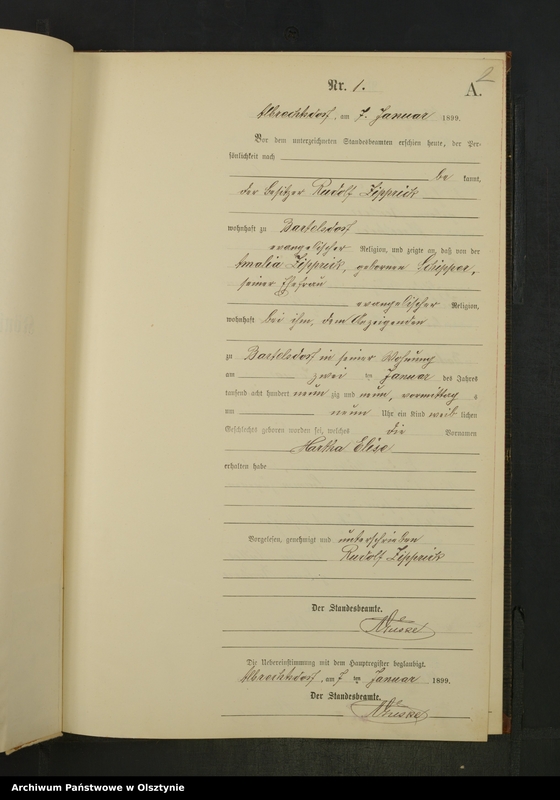 2
Nr. 1.
A.
Albrechtsdorf, am 7. Januar 1899.
Vor dem unterzeichneten Standesbeamten erschien heute, der Per-
sönlichkeit nach
be kannt,
der Besitzer Rudolf Lipprick
wohnhaft zu Bartelsdorf
evangelischer Religion, und zeigte an, daß von der
Amalia Lipprick, geborenen Schipper,
seiner Ehefrau
evangelischer Religion,
wohnhaft bei ihm, dem Anzeigenden
zu Bartelsdorf in seiner Wohnung
am zwei ten Januar des Jahres
tausend acht hundert neun zig und neun, vormittag s
um neun Uhr ein Kind weib lichen
Geschlechts geboren worden sei, welches die Vornamen
Martha Elise
erhalten habe
Vorgelesen, genehmigt und unterschrieben
Rudolf Lipprick
Der Standesbeamte.
Die Uebereinstimmung mit dem Hauptregister beglaubigt.
Albrechtsdorf, am 7 ten Januar 1899.
Der Standesbeamte.
Archiwum Państwowe w Olsztynie